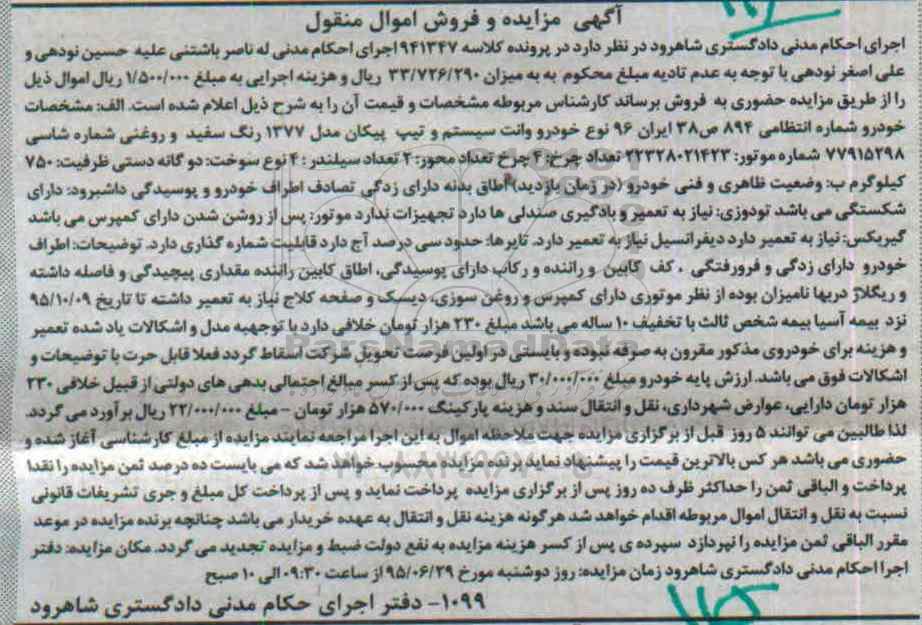 آگهی مزایده و فروش اموال منقول
اجرای احکام مدنی دادگستری شاهرود در نظر دارد در پرونده کلاسه ۹۴۱۳۴۷ اجرای احکام مدنی له ناصر باشتنی علیه حسین نودهی و
علی اصغر نودهی با توجه به عدم تادیه مبلغ محکوم به به میزان ۳۳/۷۲۶/۲۹۰ ریال و هزینه اجرایی به مبلغ ۱/۵۰۰/۰۰۰ ریال اموال ذیل
را از طریق مزایده حضوری به فروش برساند کارشناس مربوطه مشخصات و قیمت آن را به شرح ذیل اعلام شده است. الف: مشخصات
خودرو شماره انتظامی ۸۹۴ ص۳۸ ایران ۹۶ نوع خودرو وانت سیستم و تیپ پیکان مدل ۱۳۷۷ رنگ سفید و روغنی شماره شاسی
۷۷۹۱۵۲۹۸ شماره موتور: ۲۲۳۲۸۰۲۱۴۲۳ تعداد چرخ: ۴ چرخ تعداد محور: ۲ تعداد سیلندر : ۴ نوع سوخت: دو گانه دستی ظرفیت: ۷۵۰
کیلوگرم ب: وضعیت ظاهری و فنی خودرو (در زمان بازدید) اطاق بدنه دارای زدگی تصادف اطراف خودرو و پوسیدگی داشبرود: دارای
شکستگی می باشد تودوزی: نیاز به تعمیر و بادگیری صندلی ها دارد تجهیزات ندارد موتور: پس از روشن شدن دارای کمپرس می باشد
گیربکس: نیاز به تعمیر دارد دیفرانسیل نیاز به تعمیر دارد. تایرها: حدود سی درصد آج دارد قابلیت شماره گذاری دارد. توضیحات: اطراف
خودرو دارای زدگی و فرورفتگی . کف کابین و راننده و رکاب دارای پوسیدگی، اطاق کابین راننده مقداری پیچیدگی و فاصله داشته
و ریگلاژ دربها نامیزان بوده از نظر موتوری دارای کمپرس و روغن سوزی، دیسک و صفحه کلاج نیاز به تعمیر داشته تا تاریخ ۹۵/۱۰/۰۹
نزد بیمه آسیا بیمه شخص ثالث با تخفیف ۱۰ ساله می باشد مبلغ ۲۳۰ هزار تومان خلافی دارد با توجهبه مدل و اشکالات یاد شده تعمیر
و هزینه برای خودروی مذکور مقرون به صرفه نبوده و بایستی در اولین فرصت تحویل شرکت اسقاط گردد فعلا قابل حرت با توضیحات و
اشکالات فوق می باشد. ارزش پایه خودرو مبلغ ۳۰/۰۰۰/۰۰۰ ریال بوده که پس از کسر مبالغ احتمالی بدهی های دولتی از قبیل خلافی ۲۳۰
هزار تومان دارایی، عوارض شهرداری، نقل و انتقال سند و هزینه پارکینگ ۵۷۰/۰۰۰ هزار تومان – مبلغ ۲۲/۰۰۰/۰۰۰ ریال برآورد می گردد.
لذا طالبین می توانند ۵ روز قبل از برگزاری مزایده جهت ملاحظه اموال به این اجرا مراجعه نمایند مزایده از مبلغ کارشناسی آغاز شده و
حضوری می باشد هر کس بالاترین قیمت را پیشنهاد نماید برنده مزایده محسوب خواهد شد که می بایست ده درصد ثمن مزایده را نقدا
پرداخت و الباقی ثمن را حداکثر ظرف ده روز پس از برگزاری مزایده پرداخت نماید و پس از پرداخت کل مبلغ و جری تشریفات قانونی
نسبت به نقل و انتقال اموال مربوطه اقدام خواهد شد هرگونه هزینه نقل و انتقال به عهده خریدار می باشد چنانچه برنده مزایده در موعد
مقرر الباقی ثمن مزایده را نپردازد سپرده ی پس از کسر هزینه مزایده به نفع دولت ضبط و مزایده تجدید می گردد. مکان مزایده: دفتر
اجرا احکام مدنی دادگستری شاهرود زمان مزایده: روز دوشنبه مورخ ۹۵/۰۶/۲۹ از ساعت ۰۹:۳۰ الی ۱۰ صبح
۱۰۹۹- دفتر اجرای حکام مدنی دادگستری شاهرود
ParsNamadData